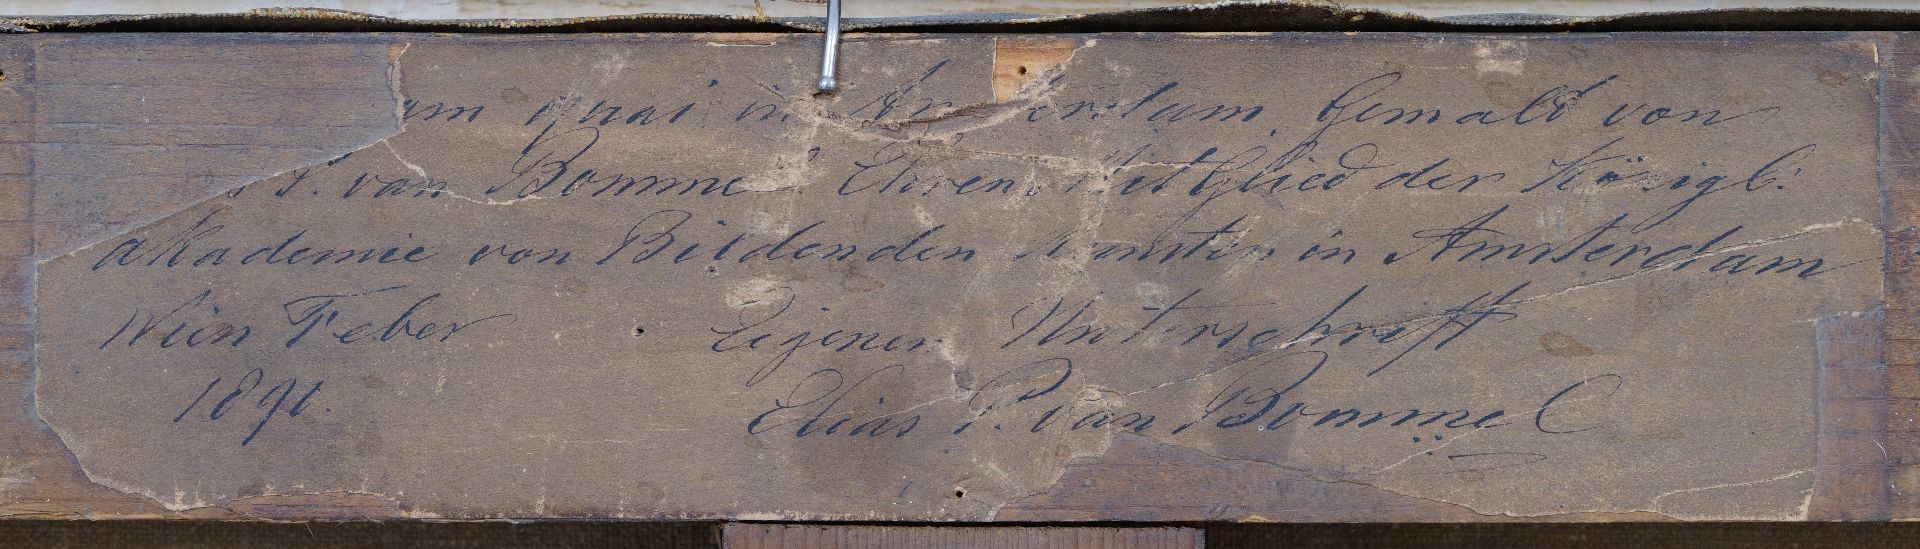 am quai in Amsterdam. Gemald von
P. van Bommel. Ehren Mitglied der Königl:
akademie von Bildenden Kunsten in Amsterdam
Wien Feber Eigener Unterschrift
1891. Elias P. van Bommel